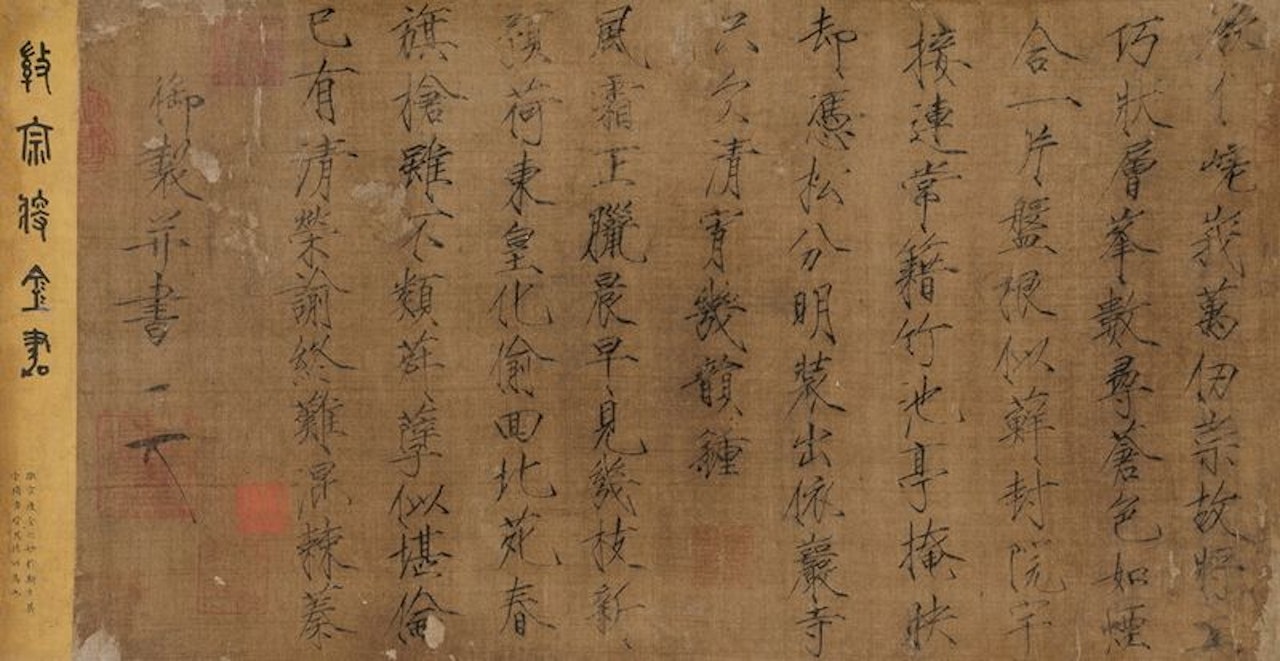 欲嶢峩萬仞崇故將工
巧狀層峯數尋蒼色如煙
合一片盤根似蘚封院宇
接連常籍竹池亭掩映
却憑松分明裝出依巖寺
只欠清宵幾韻鍾
風霜正臘晨早見幾枝新
預荷東皇化偷回北苑春
旗槍雖不類荈孽似堪倫
已有清榮諭終難混棘蓁
御製并書
徽宗瘦金書